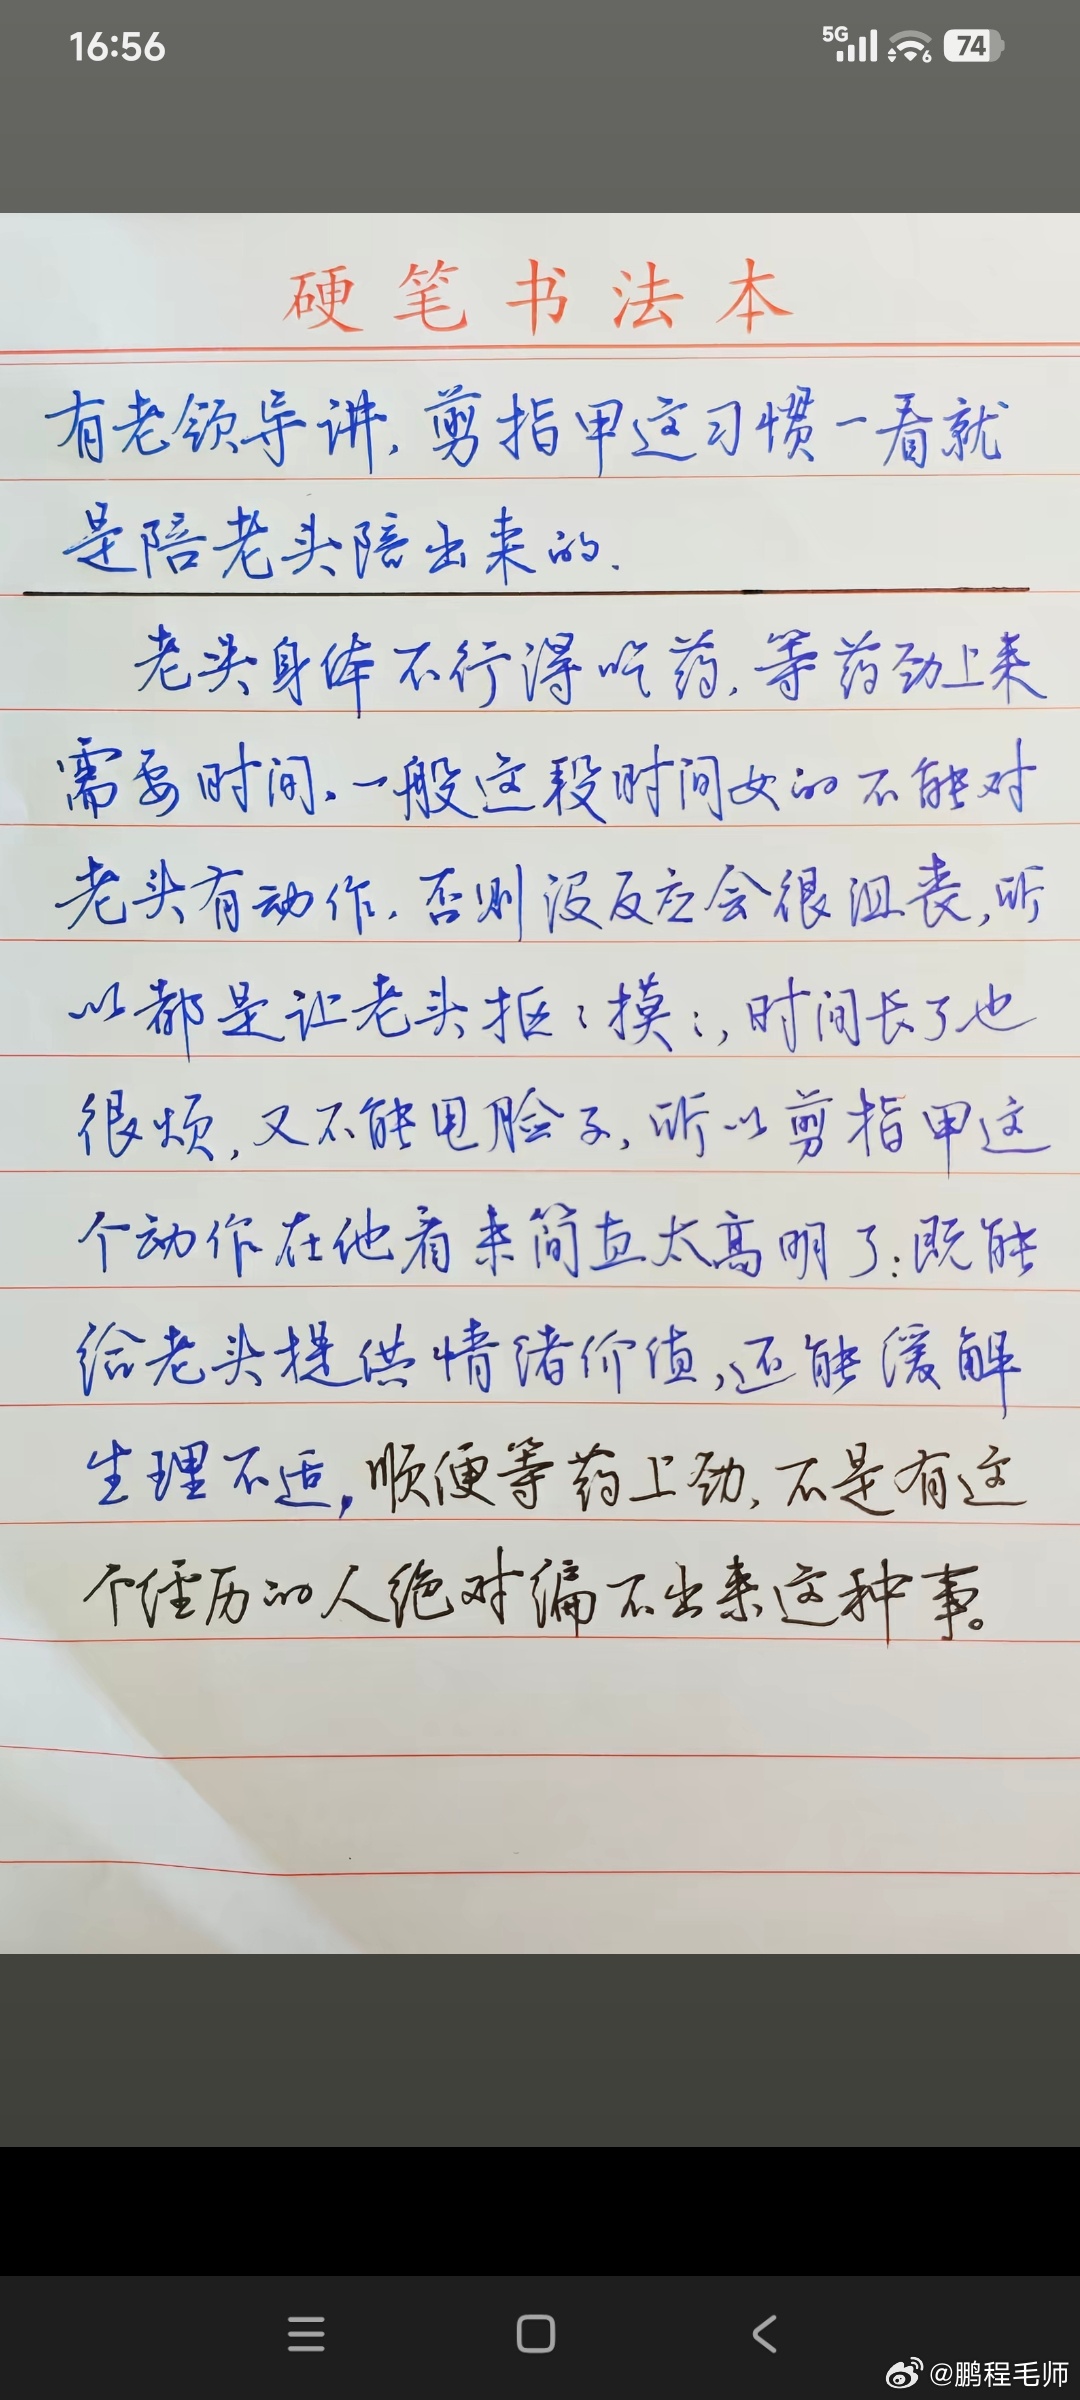 16:56
5G
6
74
硬笔书法本
有老领导讲,剪指甲这习惯一看就
是陪老头陪出来的.
老头身体不行得吃药,等药劲上来
需要时间.一般这段时间女的不能对
老头有动作.否则没反应会很沮丧,所
以都是让老头抠:摸:,时间长了也
很烦,又不能甩脸子,所以剪指甲这
个动作在他看来简直太高明了:既能
给老头提供情绪价值,还能缓解
生理不适,顺便等药上劲.不是有这
个经历的人绝对编不出来这种事。
@鹏程毛师